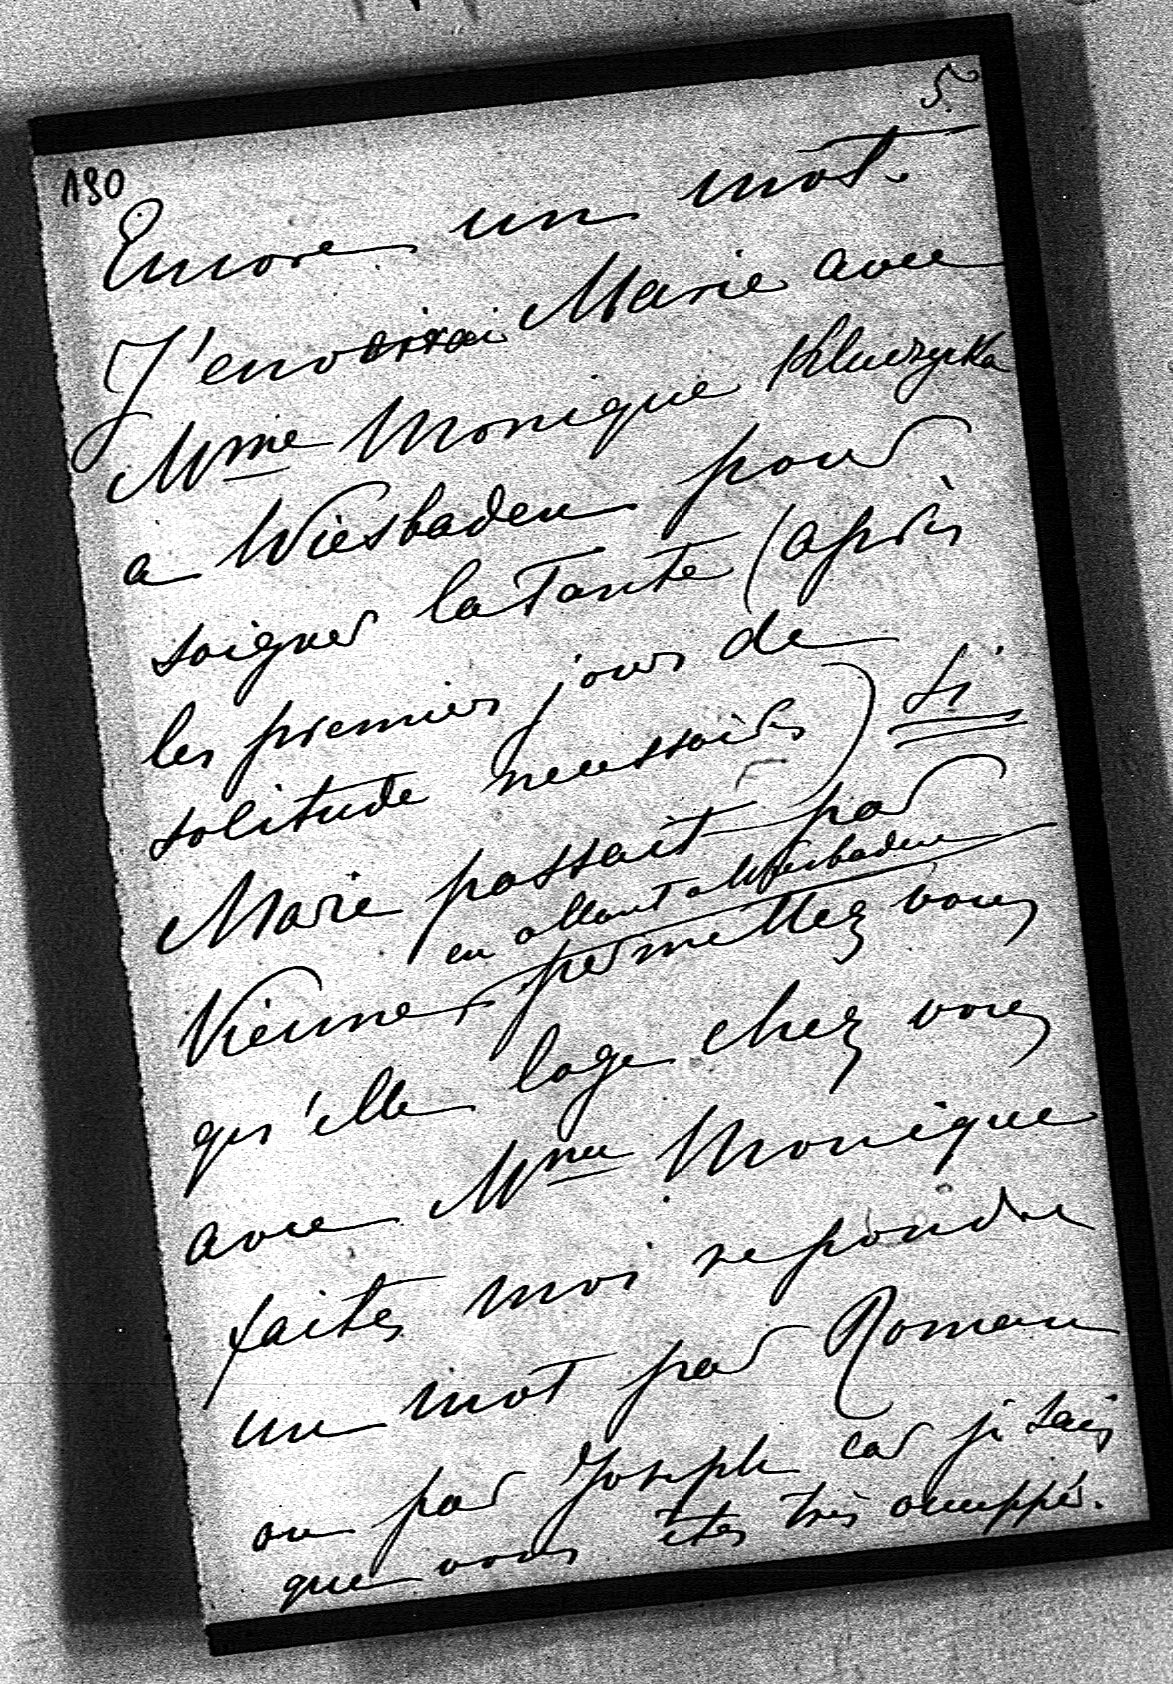 5.
180
Encore un mot.
J'envoirrai Marie avec
Mme Monique Kluczycka
a Wiesbaden pour
soigner la Tante (après
les premiers jours de
solitude necessaires) si
Marie passait par
en allant a Wiesbaden
Vienne, permettez vous
qu'elle loge chez vous
avec Mme Monique
faites moi repondre
un mot par Roman
ou par Joseph car je sais
que vous êtes très occuppés.